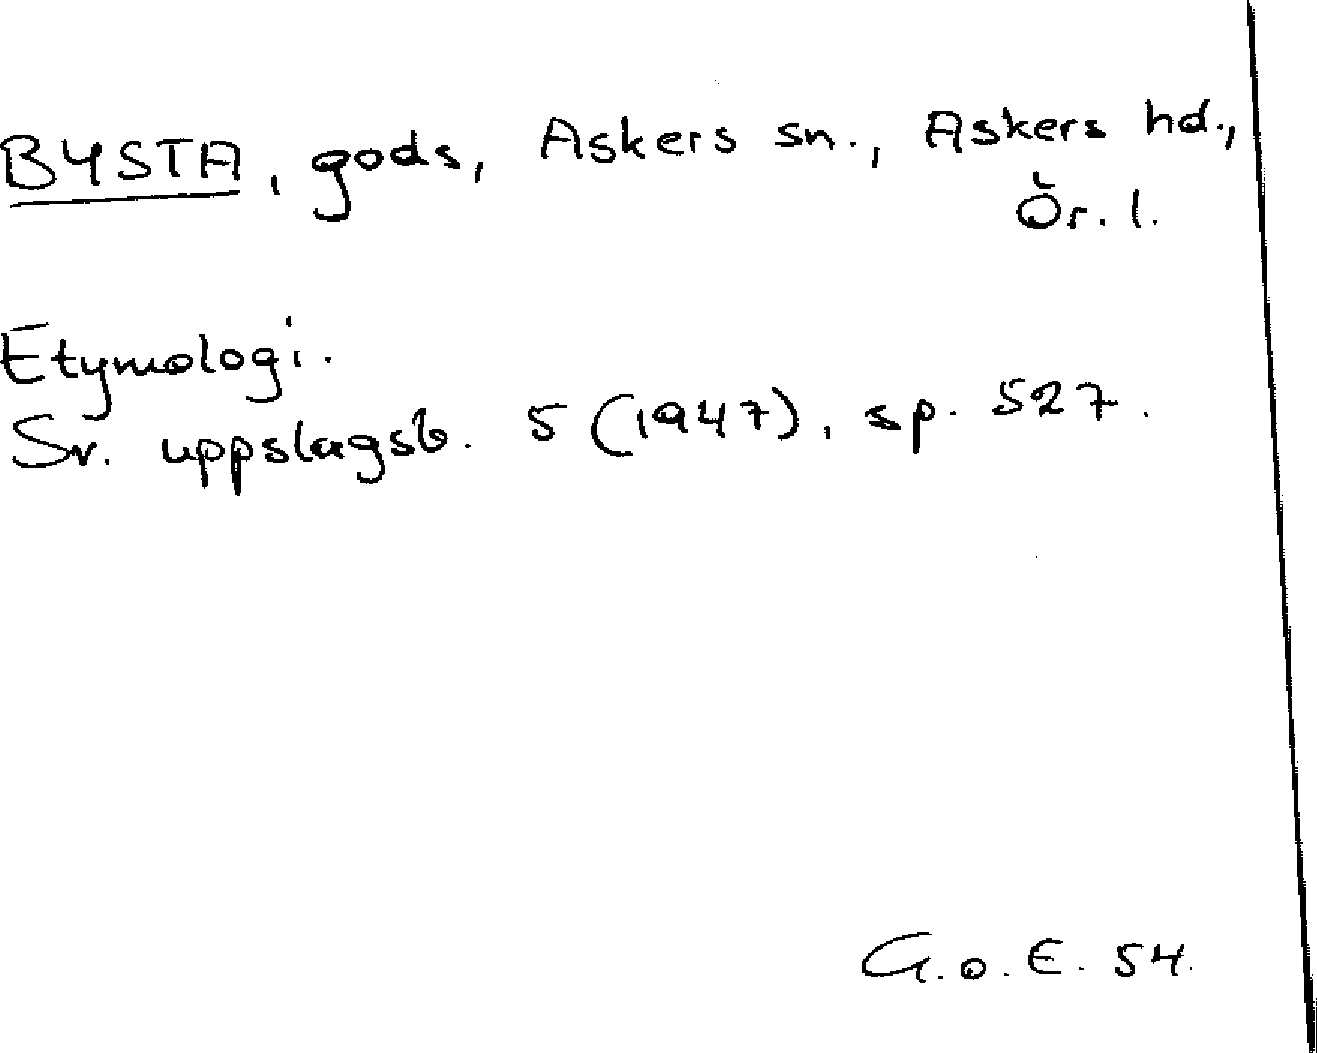 BYSTA, gods, Askers sn., Askers hd.,
Ör. l.
Etymologi.
Sv. uppslagsb. 5 (1947), sp. 527.
G.o.E. 54.